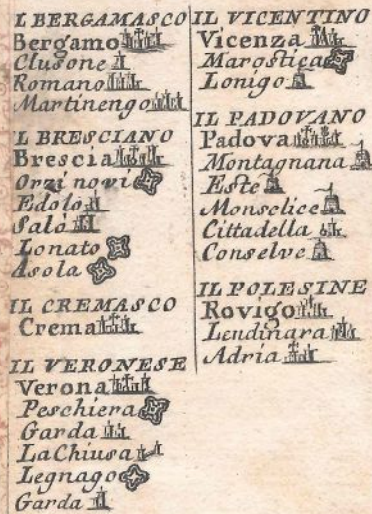 L BERGAMASCO
Bergamo
Clusone
Romano
Martinengo
L BRESCIANO
Brescia
Orzi novi
Edolo
Salò
Lonato
Asola
IL CREMASCO
Crema
IL VERONESE
Verona
Peschiera
Garda
La Chiusa
Legnago
Garda
IL VICENTINO
Vicenza
Marostica
Lonigo
IL PADOVANO
Padova
Montagnana
Este
Monselice
Cittadella
Conselve
IL POLESINE
Rovigo
Lendinara
Adria